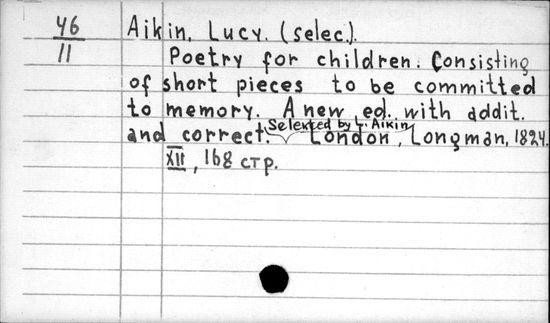 46
11
Aikin, Lucy. (selec.).
Poetry for children. Consisting
of short pieces to be committed
to memory. A new ed. with addit.
and correct. Selected by L. Aikin London, Longman, 1824.
XII, 168 стр.